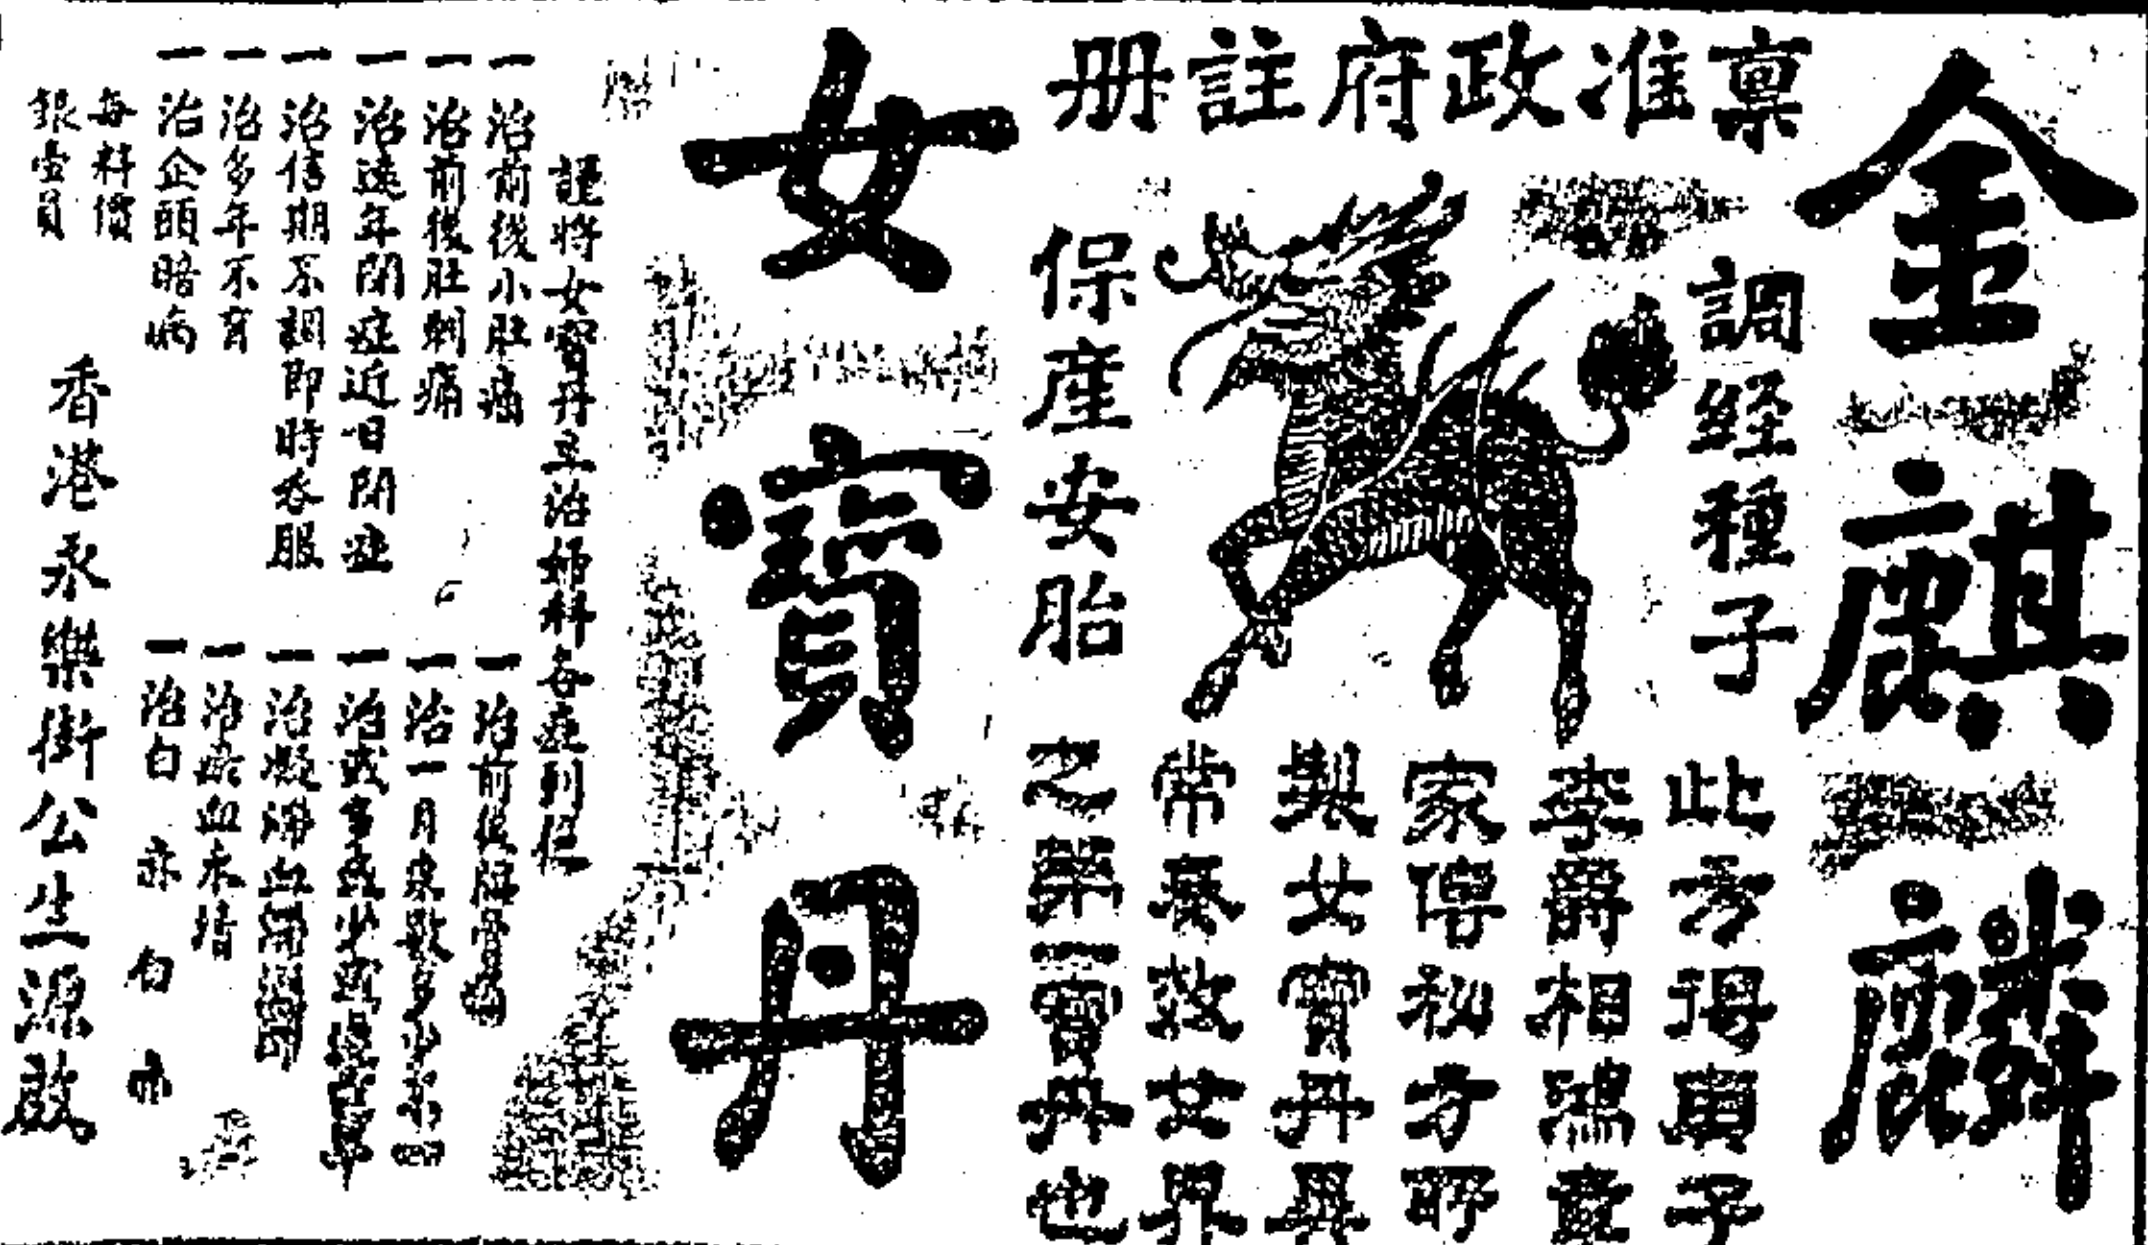 金麒麟
稟准政府註册
調経種子
保產安胎
此方得輿子
李爵相鴻章
家傳秘方所
製女寶丹異
常奏效女界
之第一寶丹也
女寶丹
謹將女寶丹主治婦科各症列後
一治前後小肚痛
一治前後肚刺痛
一治遠年閉症近日閉症
一治信期不調即時吞服
一治多年不育
一治企頭暗病
一治前後腰
一治一月來數
一治或多或少
一治凝滯血
一治瘀血未清
一治白
每料價
銀壹員
香港永樂街公生源啟